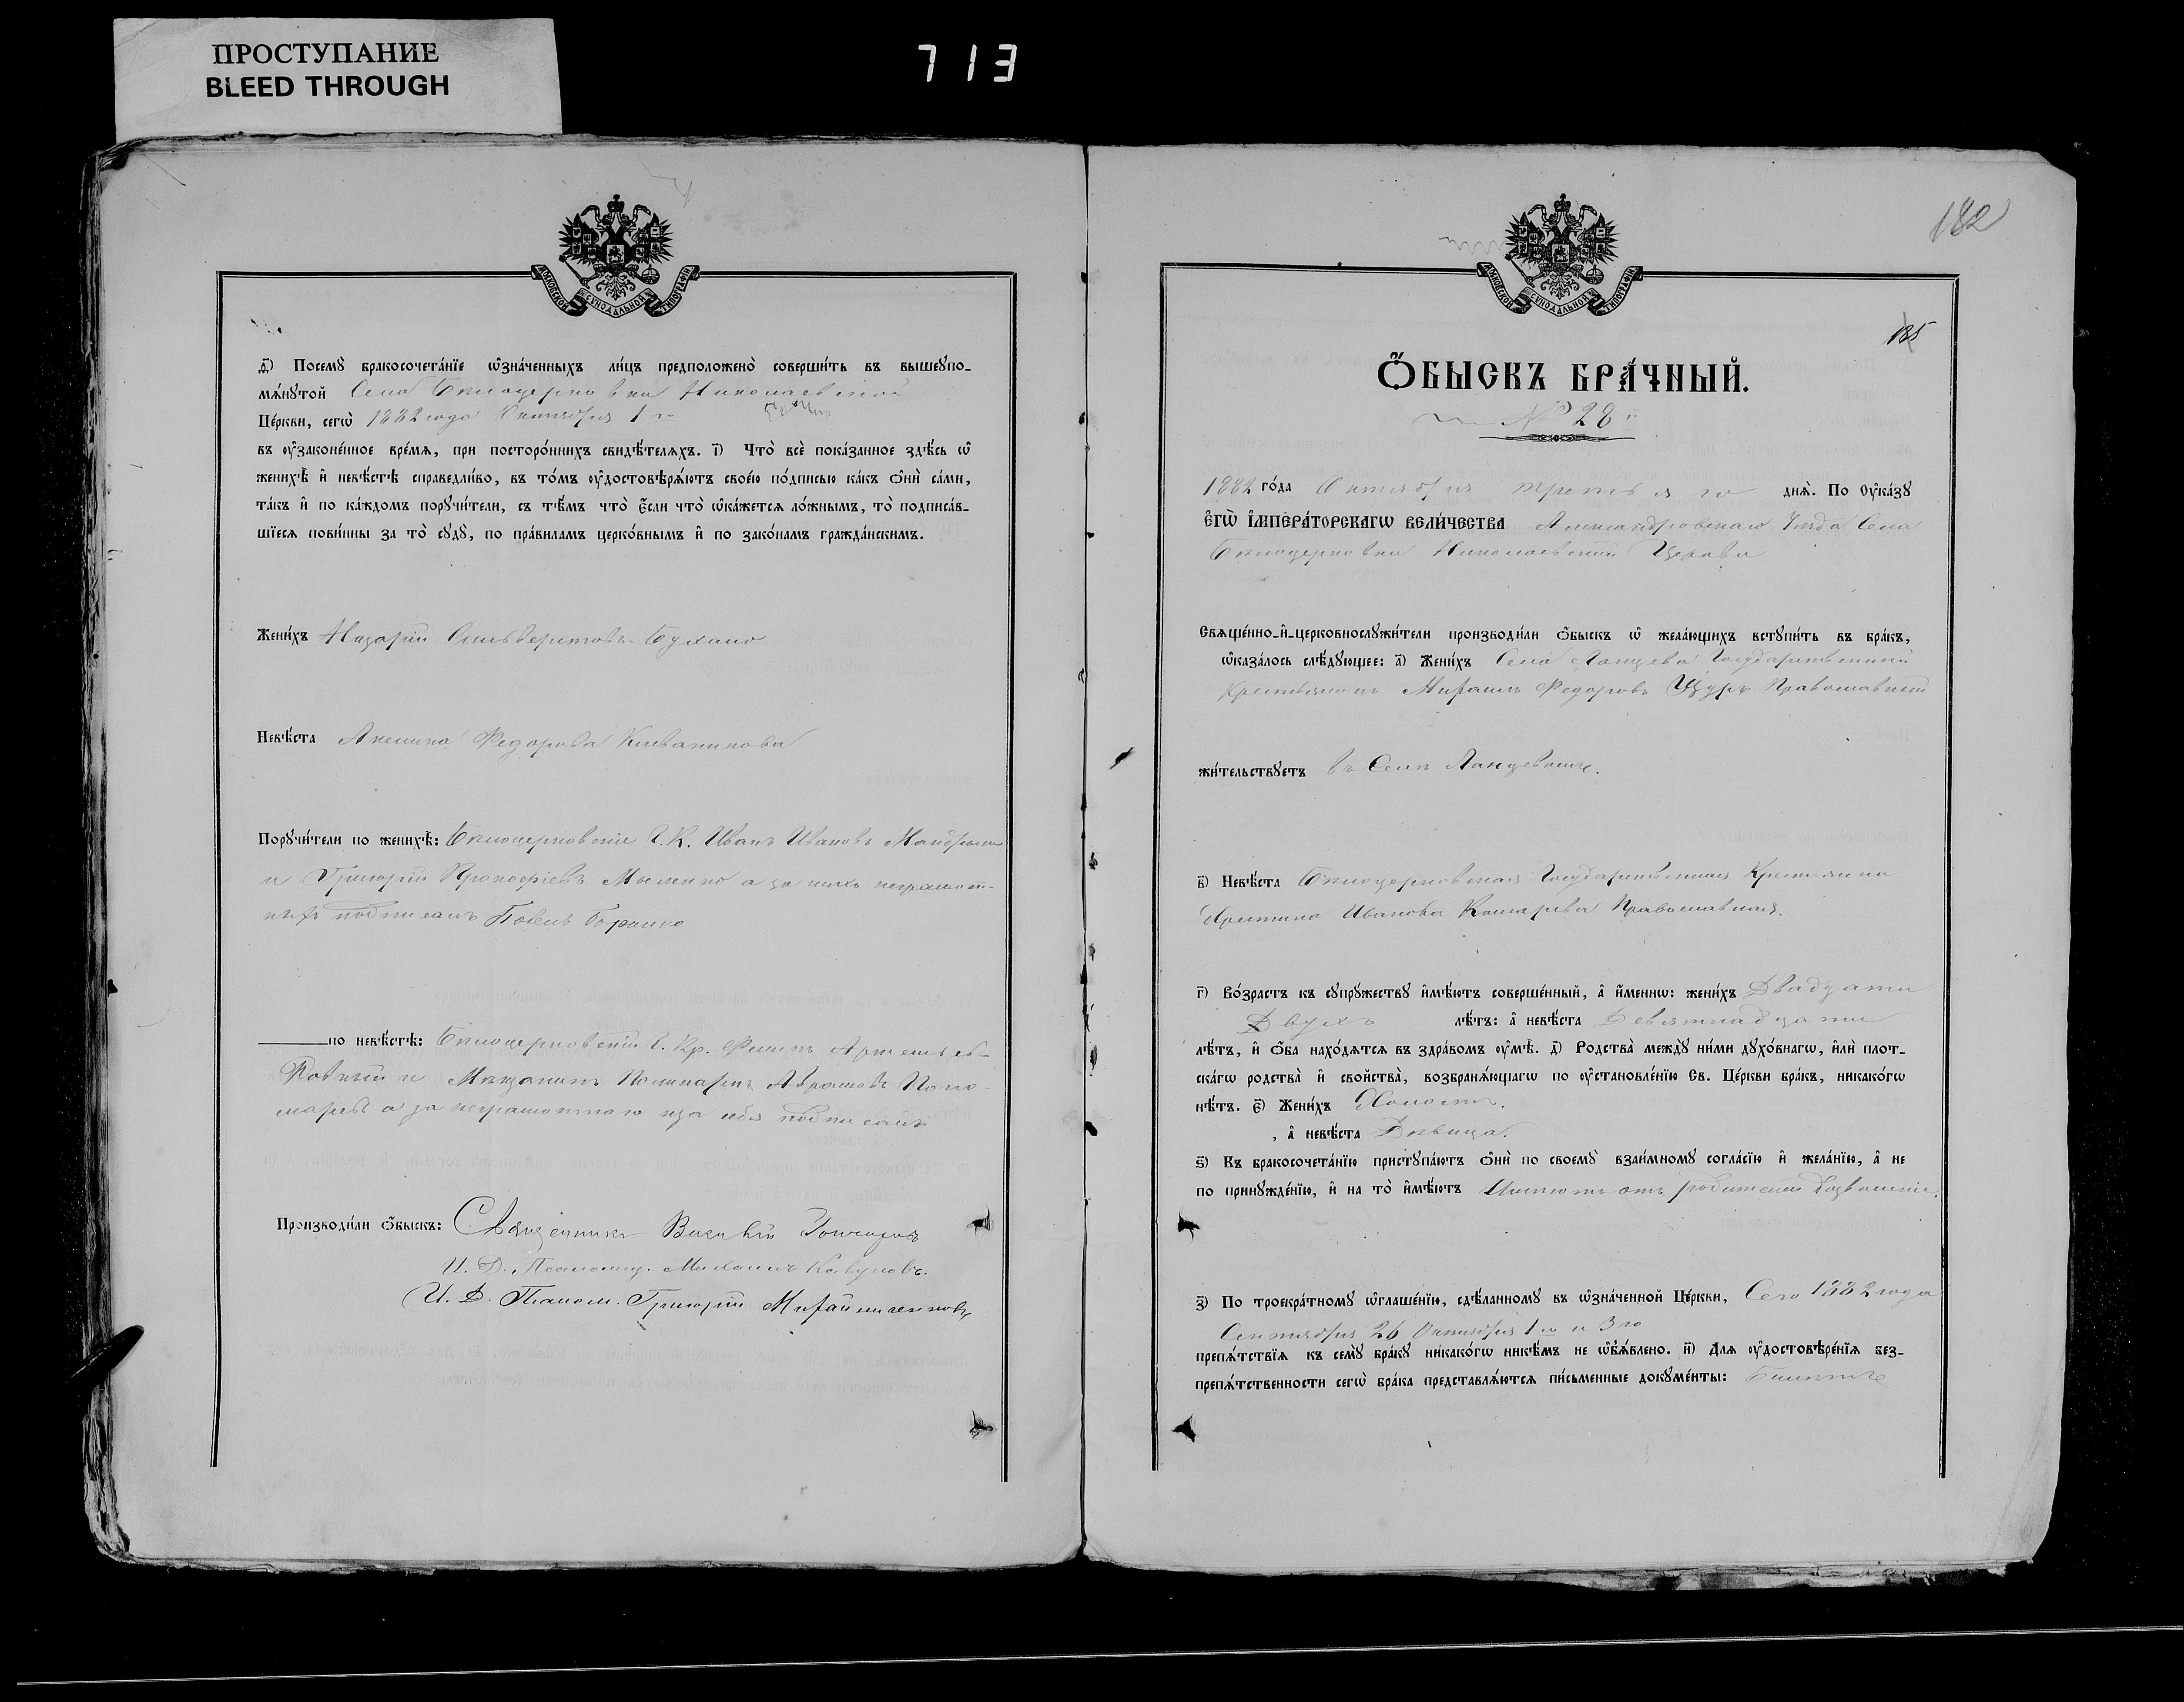 ПРОСТУПАНИЕ
BLEED THROUGH
713
МОСКОВСКОЙ СѴНОДАЛЬНОЙ ТИПОГРАФІИ
д҃) Посемꙋ̀ бракосочета́нїе ѡ҆зна́ченныхъ ли́цъ предположено̀ соверши́ть въ вышеꙋпо-
мѧ́нꙋтой Села Бѣлоцерковки Николаевской
Це́ркви, сегѡ̀ 1882 года Октября 1 го
въ ᲂу҆зако́ненное вре́мѧ, при посторо́ннихъ свидѣ́телѧхъ. і҃) Что̀ всѐ пока́занное здѣ́сь ѡ҆
женихѣ̀ и҆ невѣ́стѣ справедли́во, въ то́мъ ᲂу҆достовѣрѧ́ютъ свое́ю по́дписью ка́къ ѻ҆нѝ са́ми,
та́къ и҆ по ка́ждомъ порꙋчи́тели, съ тѣ́мъ что̀ є҆́сли что̀ ѡ҆ка́жетсѧ ло́жнымъ, то̀ подписа́в-
шїесѧ пови́нны за то̀ сꙋдꙋ̀, по пра́виламъ церко́внымъ и҆ по зако́намъ гражда́нскимъ.
Жени́хъ Назарій Сильверстовъ
Невѣ́ста Акелина Федорова
Порꙋчи́тели по женихѣ̀: Бѣлоцерковскіе Г. К. Иванъ Ивановъ
и Григорій Прокофіевъ а за нихъ неграмот-
ныхъ подписалъ Павелъ
по невѣ́стѣ: Бѣлоцерковскій Г. Кр. Филипъ
и Мѣщанинъ Аврамовъ Поно-
маревъ а за неграмотнаго и за себя подписалъ
Производи́ли ѻ҆́быскъ: Священникъ Василій Гончаровъ
И. Д. Псаломщ. Михаилъ
И. Д. Псалом. Григорій
182
МОСКОВСКОЙ СѴНОДАЛЬНОЙ ТИПОГРАФІИ
Ѻ҆́БЫСКЪ БРА́ЧНЫЙ.
№ 28
1882 го́да Октября третьяго днѧ̀. По ᲂу҆ка́зꙋ
є҆гѡ̀ и҆мпера́торскагѡ вели́чества Александровскаго Уѣзда Села
Бѣлоцерковки Николаевской Церкви
Свѧще́нно-и҆-церковнослꙋжи́тели производи́ли ѻ҆́быскъ ѡ҆ жела́ющихъ встꙋпи́ть въ бра́къ,
ѡ҆каза́лось слѣ́дꙋющее: а҃) Жени́хъ Села Ланцева Государственный
крестьянинъ Федоровъ Щуръ Православный
жи́тельствꙋетъ въ Селѣ
в҃) Невѣ́ста Бѣлоцерковская Государственная Крестьянка
Христина Иванова Православная.
г҃) Во́зрастъ къ сꙋпрꙋ́жествꙋ и҆мѣ́ютъ соверше́нный, а҆ и҆́меннѡ: жени́хъ Двадцати
Двухъ лѣ́тъ: а҆ невѣ́ста Девятнадцати
лѣ́тъ, и҆ ѻ҆́ба нахо́дѧтсѧ въ здра́вомъ ᲂу҆мѣ̀. д҃) Родства̀ междꙋ̀ ни́ми дꙋхо́внагѡ, и҆лѝ плот-
ска́гѡ родства̀ и҆ свойства̀, возбранѧ́ющагѡ по ᲂу҆становле́нїю Св. Це́ркви бра́къ, никако́гѡ
нѣ́тъ. є҃) Жени́хъ Холостъ.
, а҆ невѣ́ста Дѣвица.
ѕ҃) Къ бракосочета́нїю пристꙋпа́ютъ ѻ҆нѝ по своемꙋ̀ взаи́мномꙋ согла́сїю и҆ жела́нїю, а҆ не
по принꙋжде́нїю, и҆ на то̀ и҆мѣ́ютъ Имѣютъ отъ родителей дозволеніе.
з҃) По троекра́тномꙋ ѡ҆глаше́нїю, сдѣ́ланномꙋ въ ѡ҆зна́ченной Це́ркви, Сего 1882 года
Сентября 26 Октября 1 го и 3 го
препѧ́тствїѧ къ семꙋ̀ бра́кꙋ никако́гѡ никѣ́мъ не ѡ҆б̾ѧ́влено. и҃) Длѧ ᲂу҆достовѣре́нїѧ без-
препѧ́тственности сегѡ̀ бра́ка представлѧ́ютсѧ пи́сьменные докꙋме́нты: